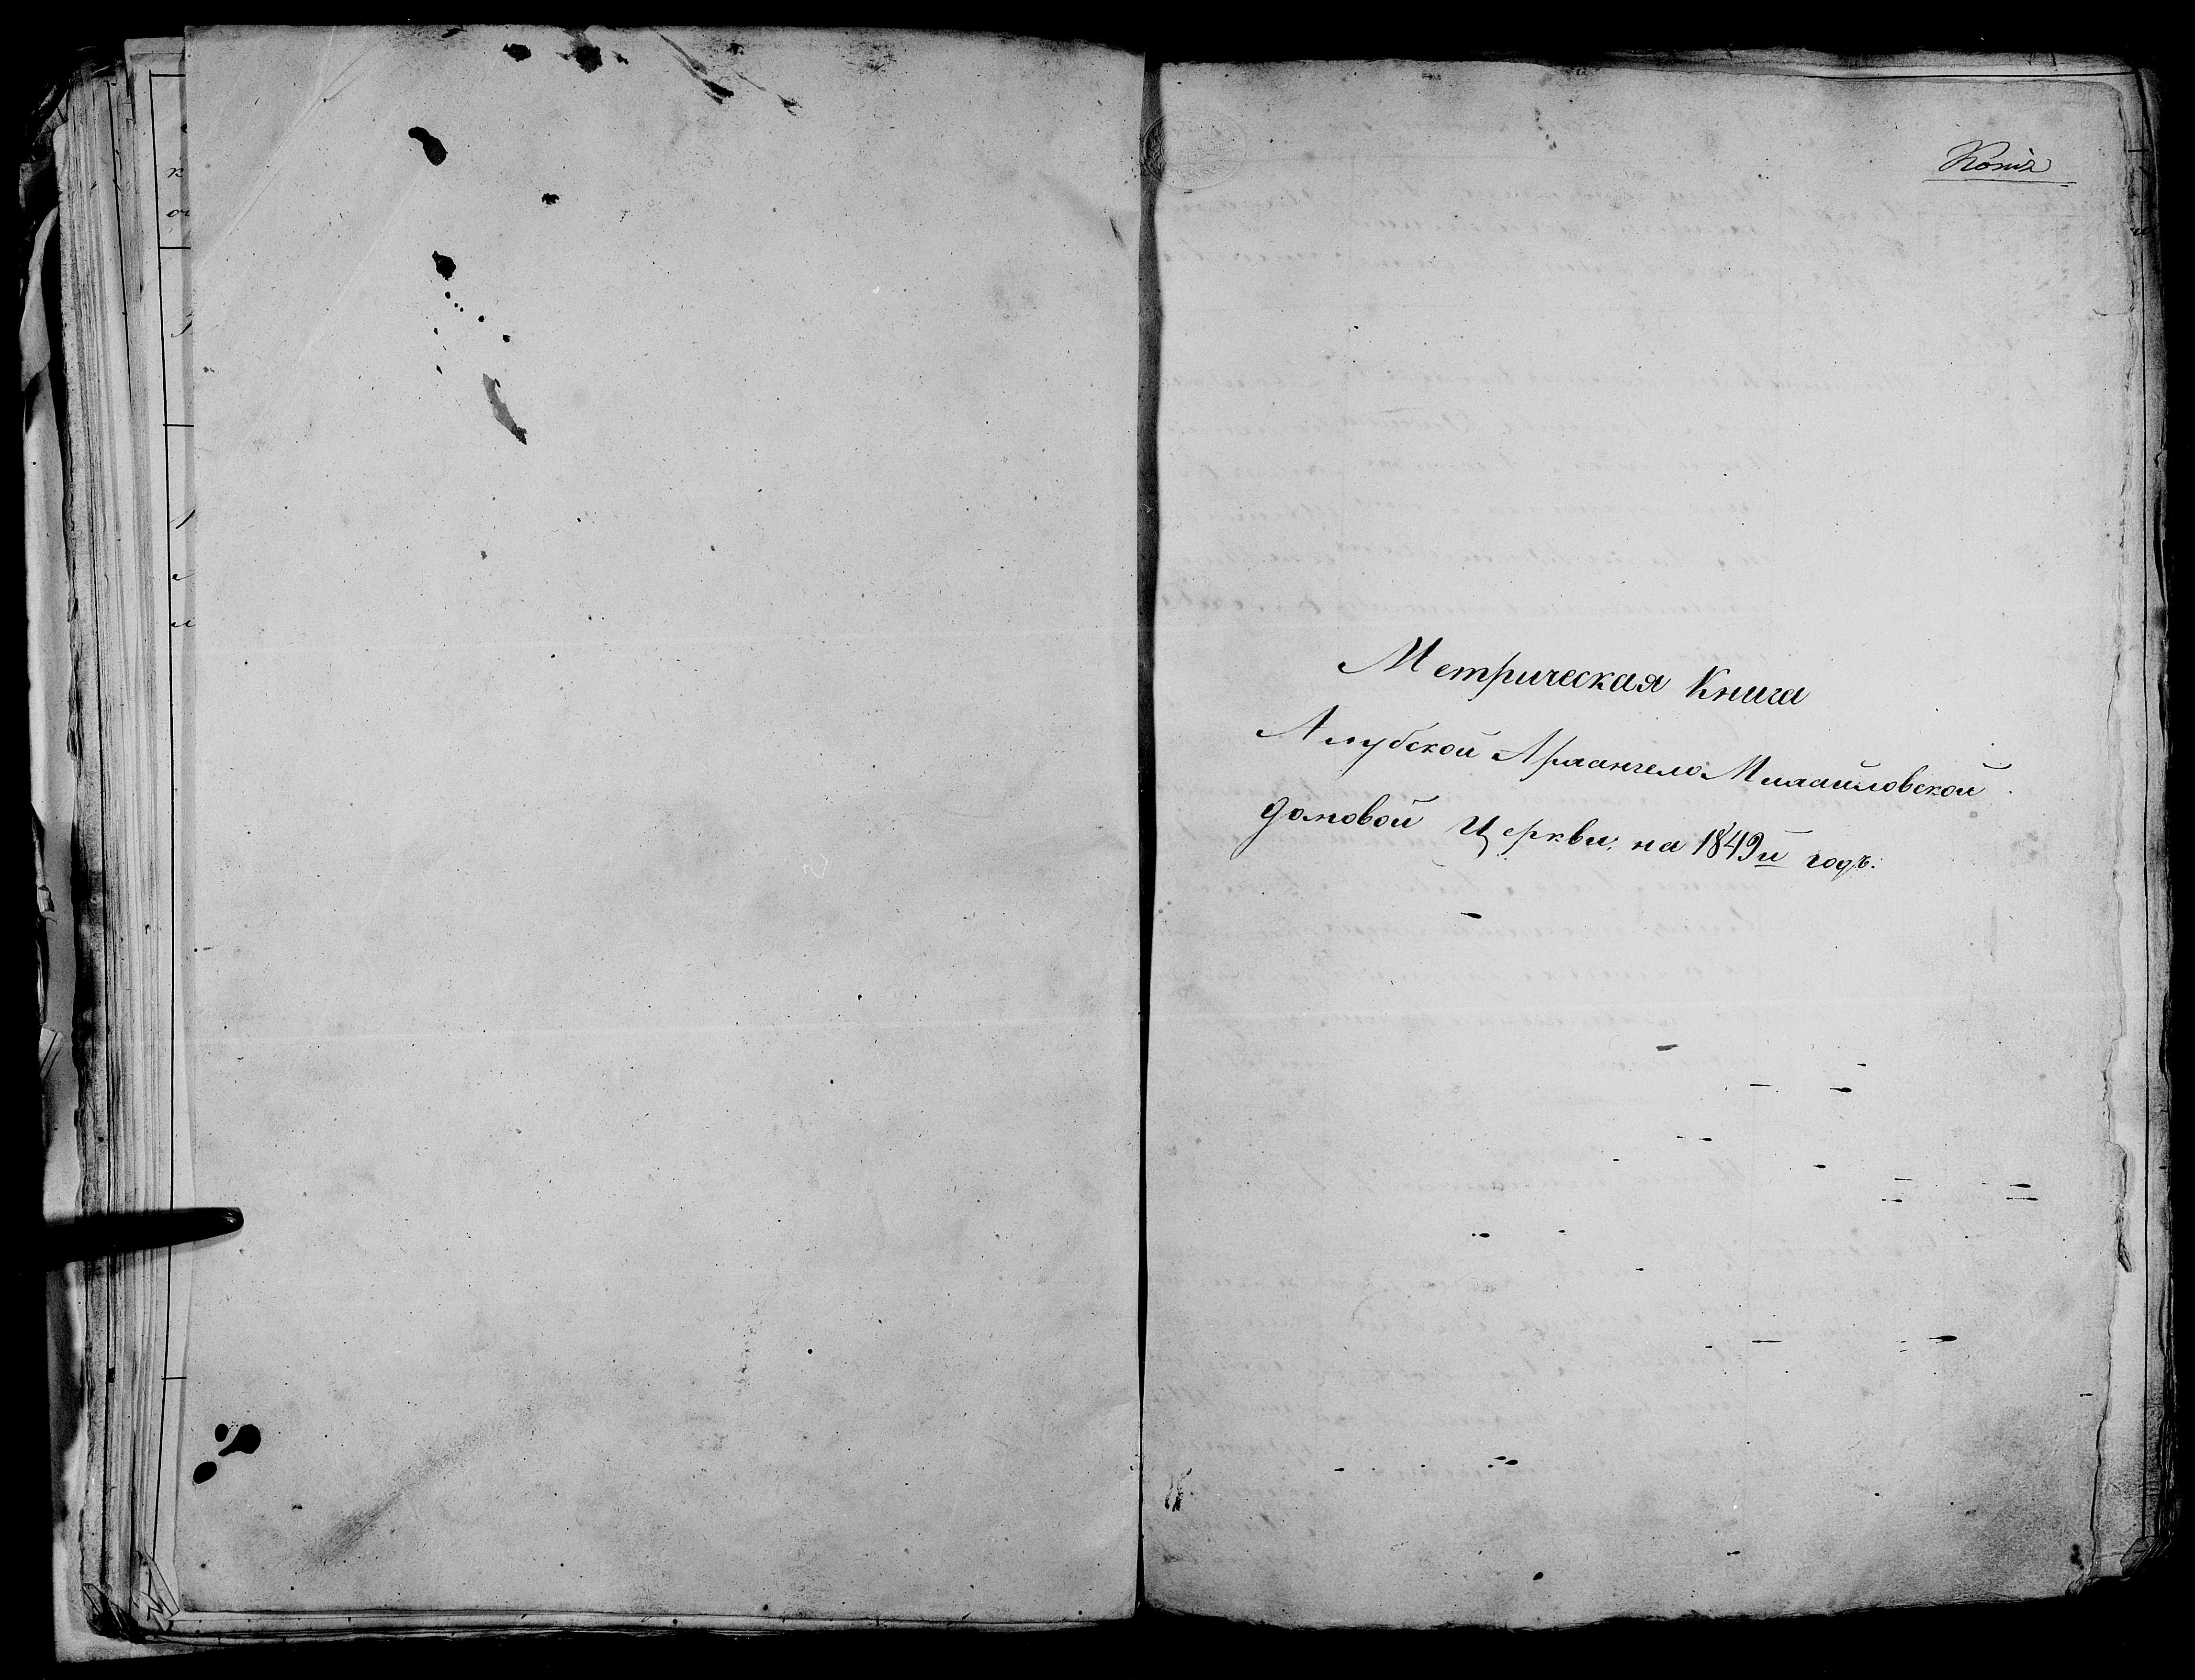 Копія
Метрическая Книга
Алубской Архангело Михайловской
домовой Церкви, на 1849й годъ.